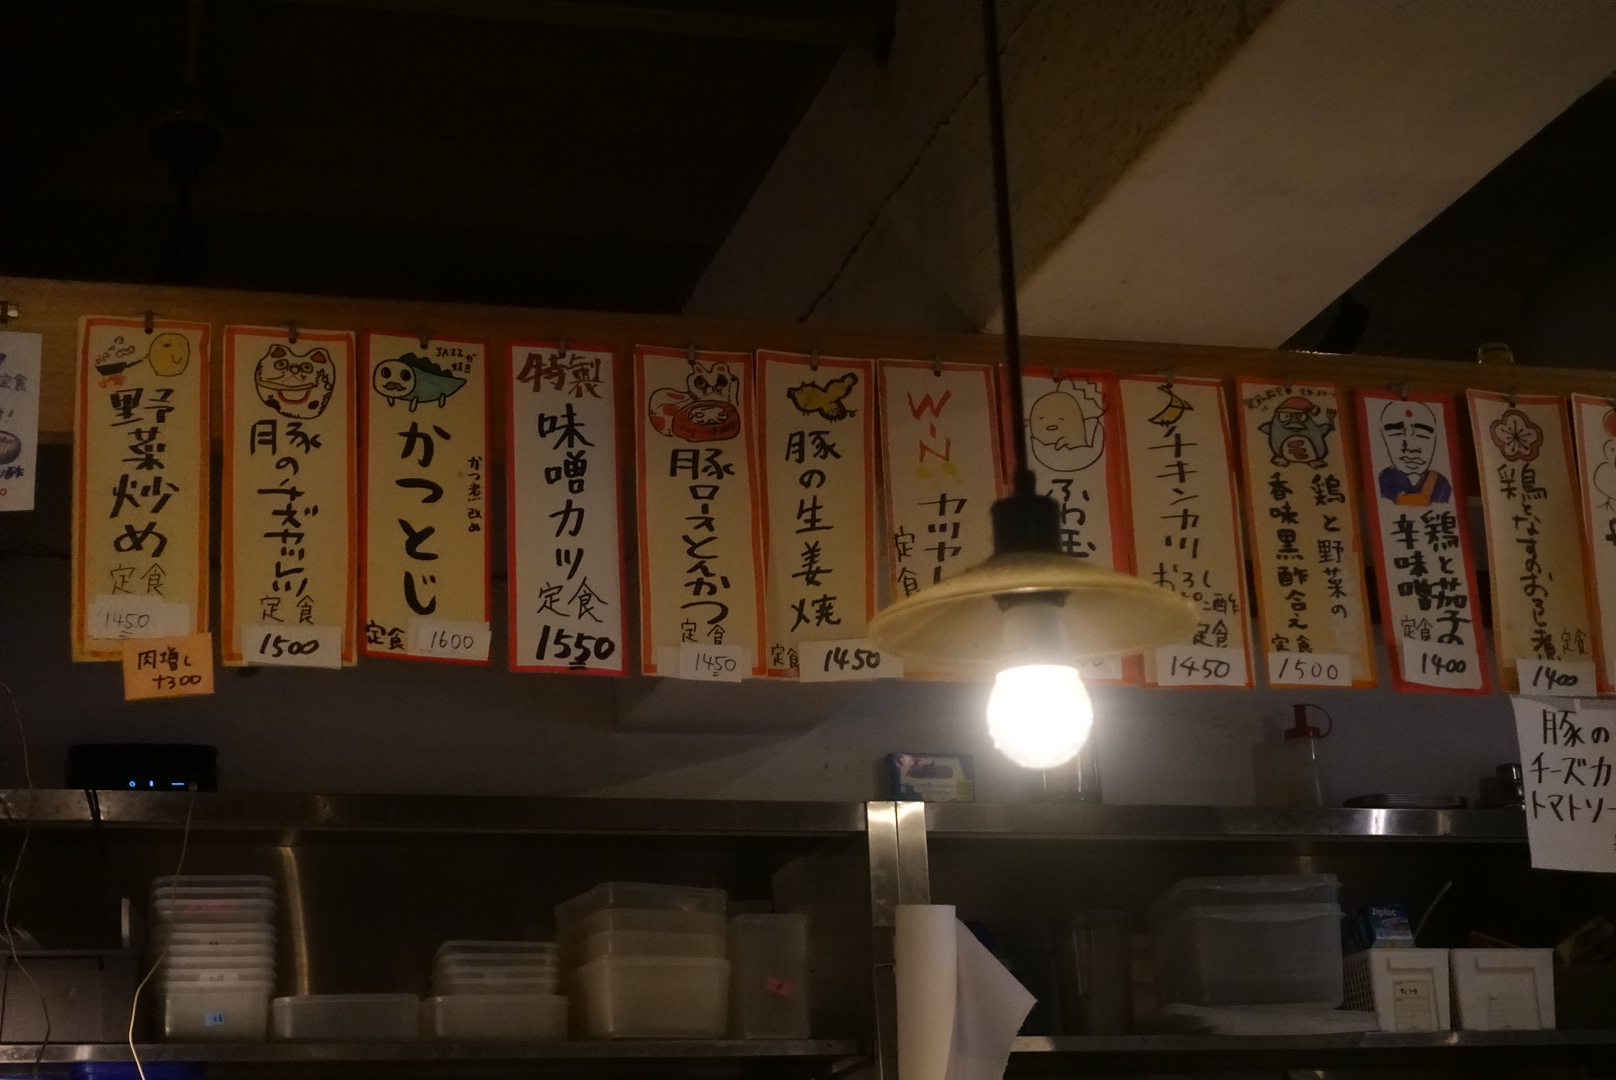 定食
野菜炒め
定食
1450
肉増し
+300
豚のチーズカツ
定食
1500
JAZZが
好き
かつとじ
かつ煮改め
定食
1600
特製
味噌カツ
定食
1550
豚ロースとんかつ
定食
1450
豚の生姜焼
定食
1450
WIN
カツカレー
定食
ふわ玉
チキンカツ
おろしぽん酢
定食
1450
鶏と野菜の
香味黒酢合え
定食
1500
鶏と茄子の
辛味噌
定食
1400
鶏となすのおろし煮
定食
1400
豚の
チーズカ
トマトソー
Ziploc